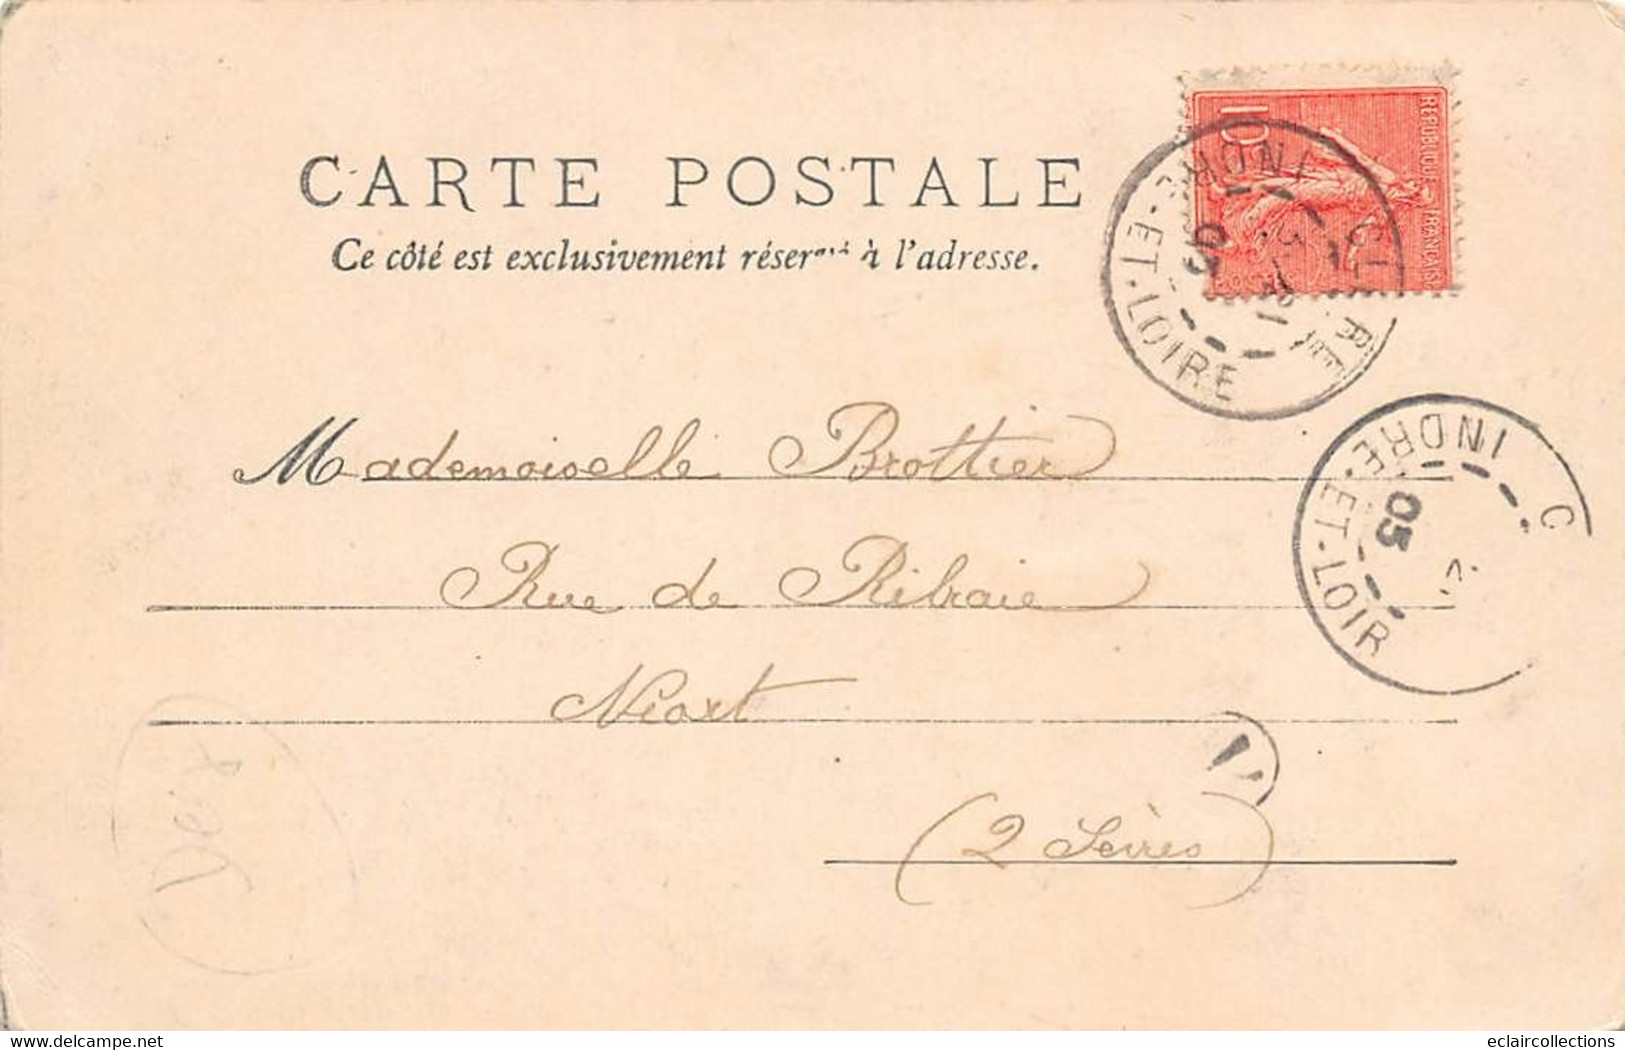 CARTE POSTALE
Ce côté est exclusivement réservé à l'adresse.
10
REPUBLIQUE FRANÇAISE
INDRE-ET-LOIRE
05
C
INDRE-ET-LOIR
05
Mademoiselle Brottier
Rue de Ribraie
Niort
(2 Sèvres)
delcampe.net
eclaircollections